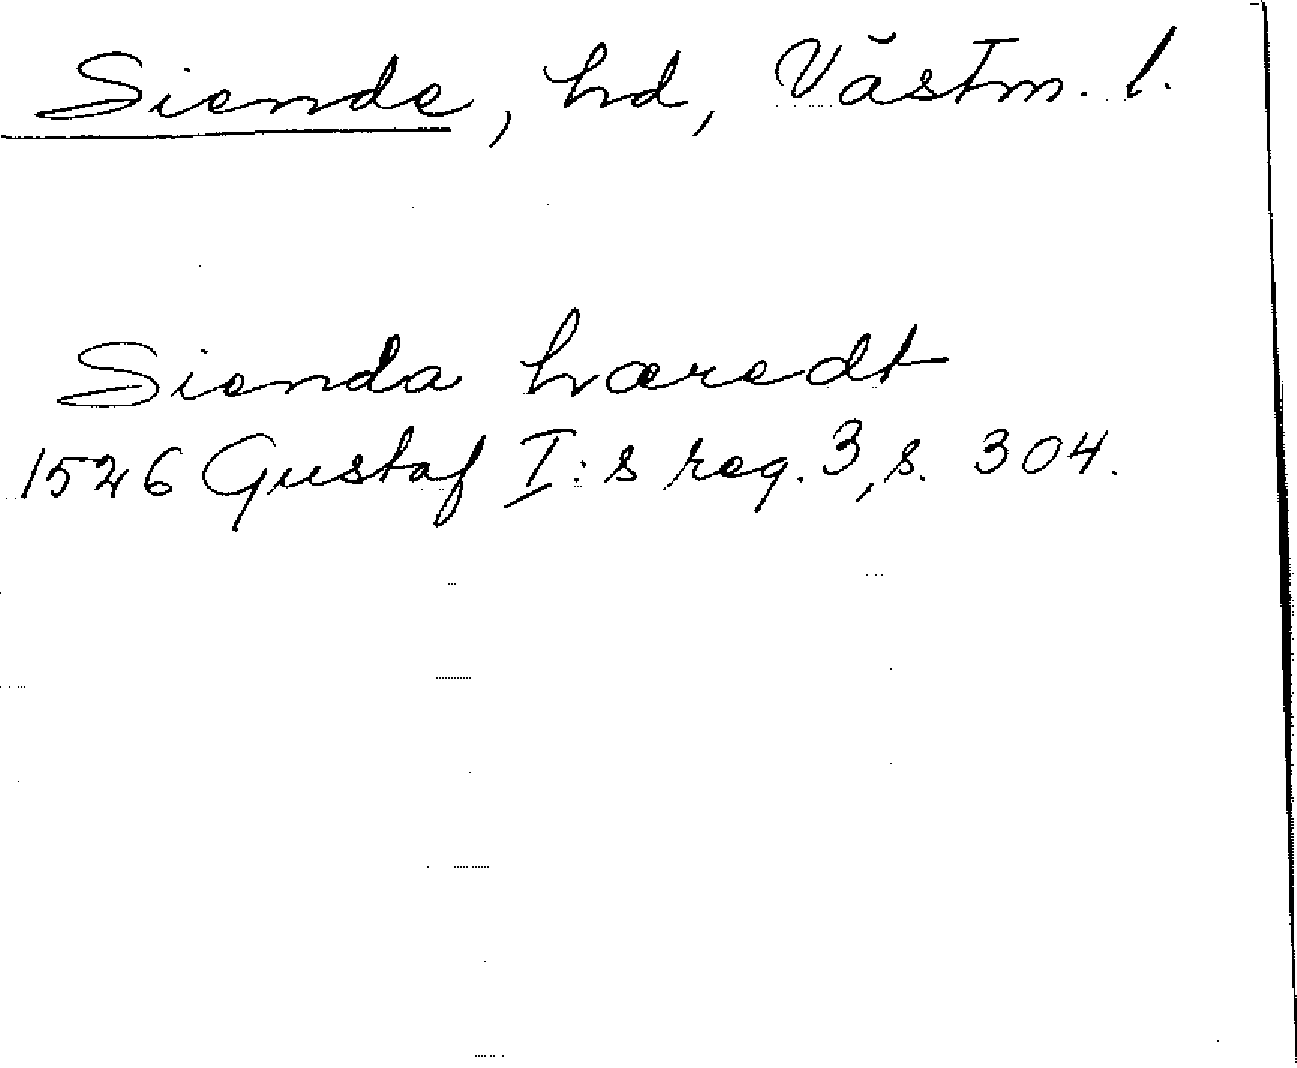 Siende, hd, Västm. l.
Sienda hæredt
1526 Gustaf I:s reg. 3, s. 304.